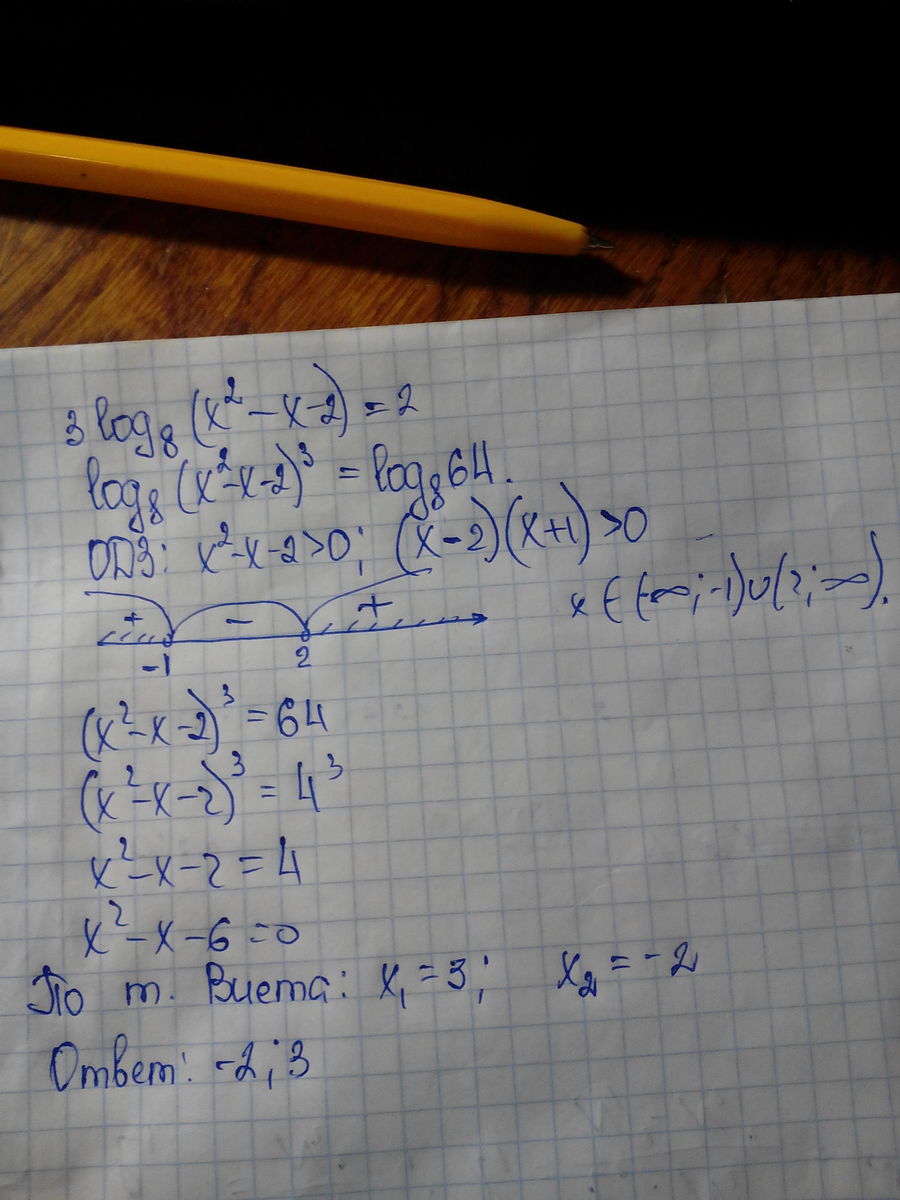 3 log₈ (x² - x - 2) = 2
log₈ (x² - x - 2)³ = log₈ 64.
ОДЗ: x² - x - 2 > 0; (x - 2)(x + 1) > 0
x ∈ (-∞; -1) ∪ (2; ∞).
+ - +
-1 2
(x² - x - 2)³ = 64
(x² - x - 2)³ = 4³
x² - x - 2 = 4
x² - x - 6 = 0
По т. Виета: x₁ = 3; x₂ = -2
Ответ: -2; 3